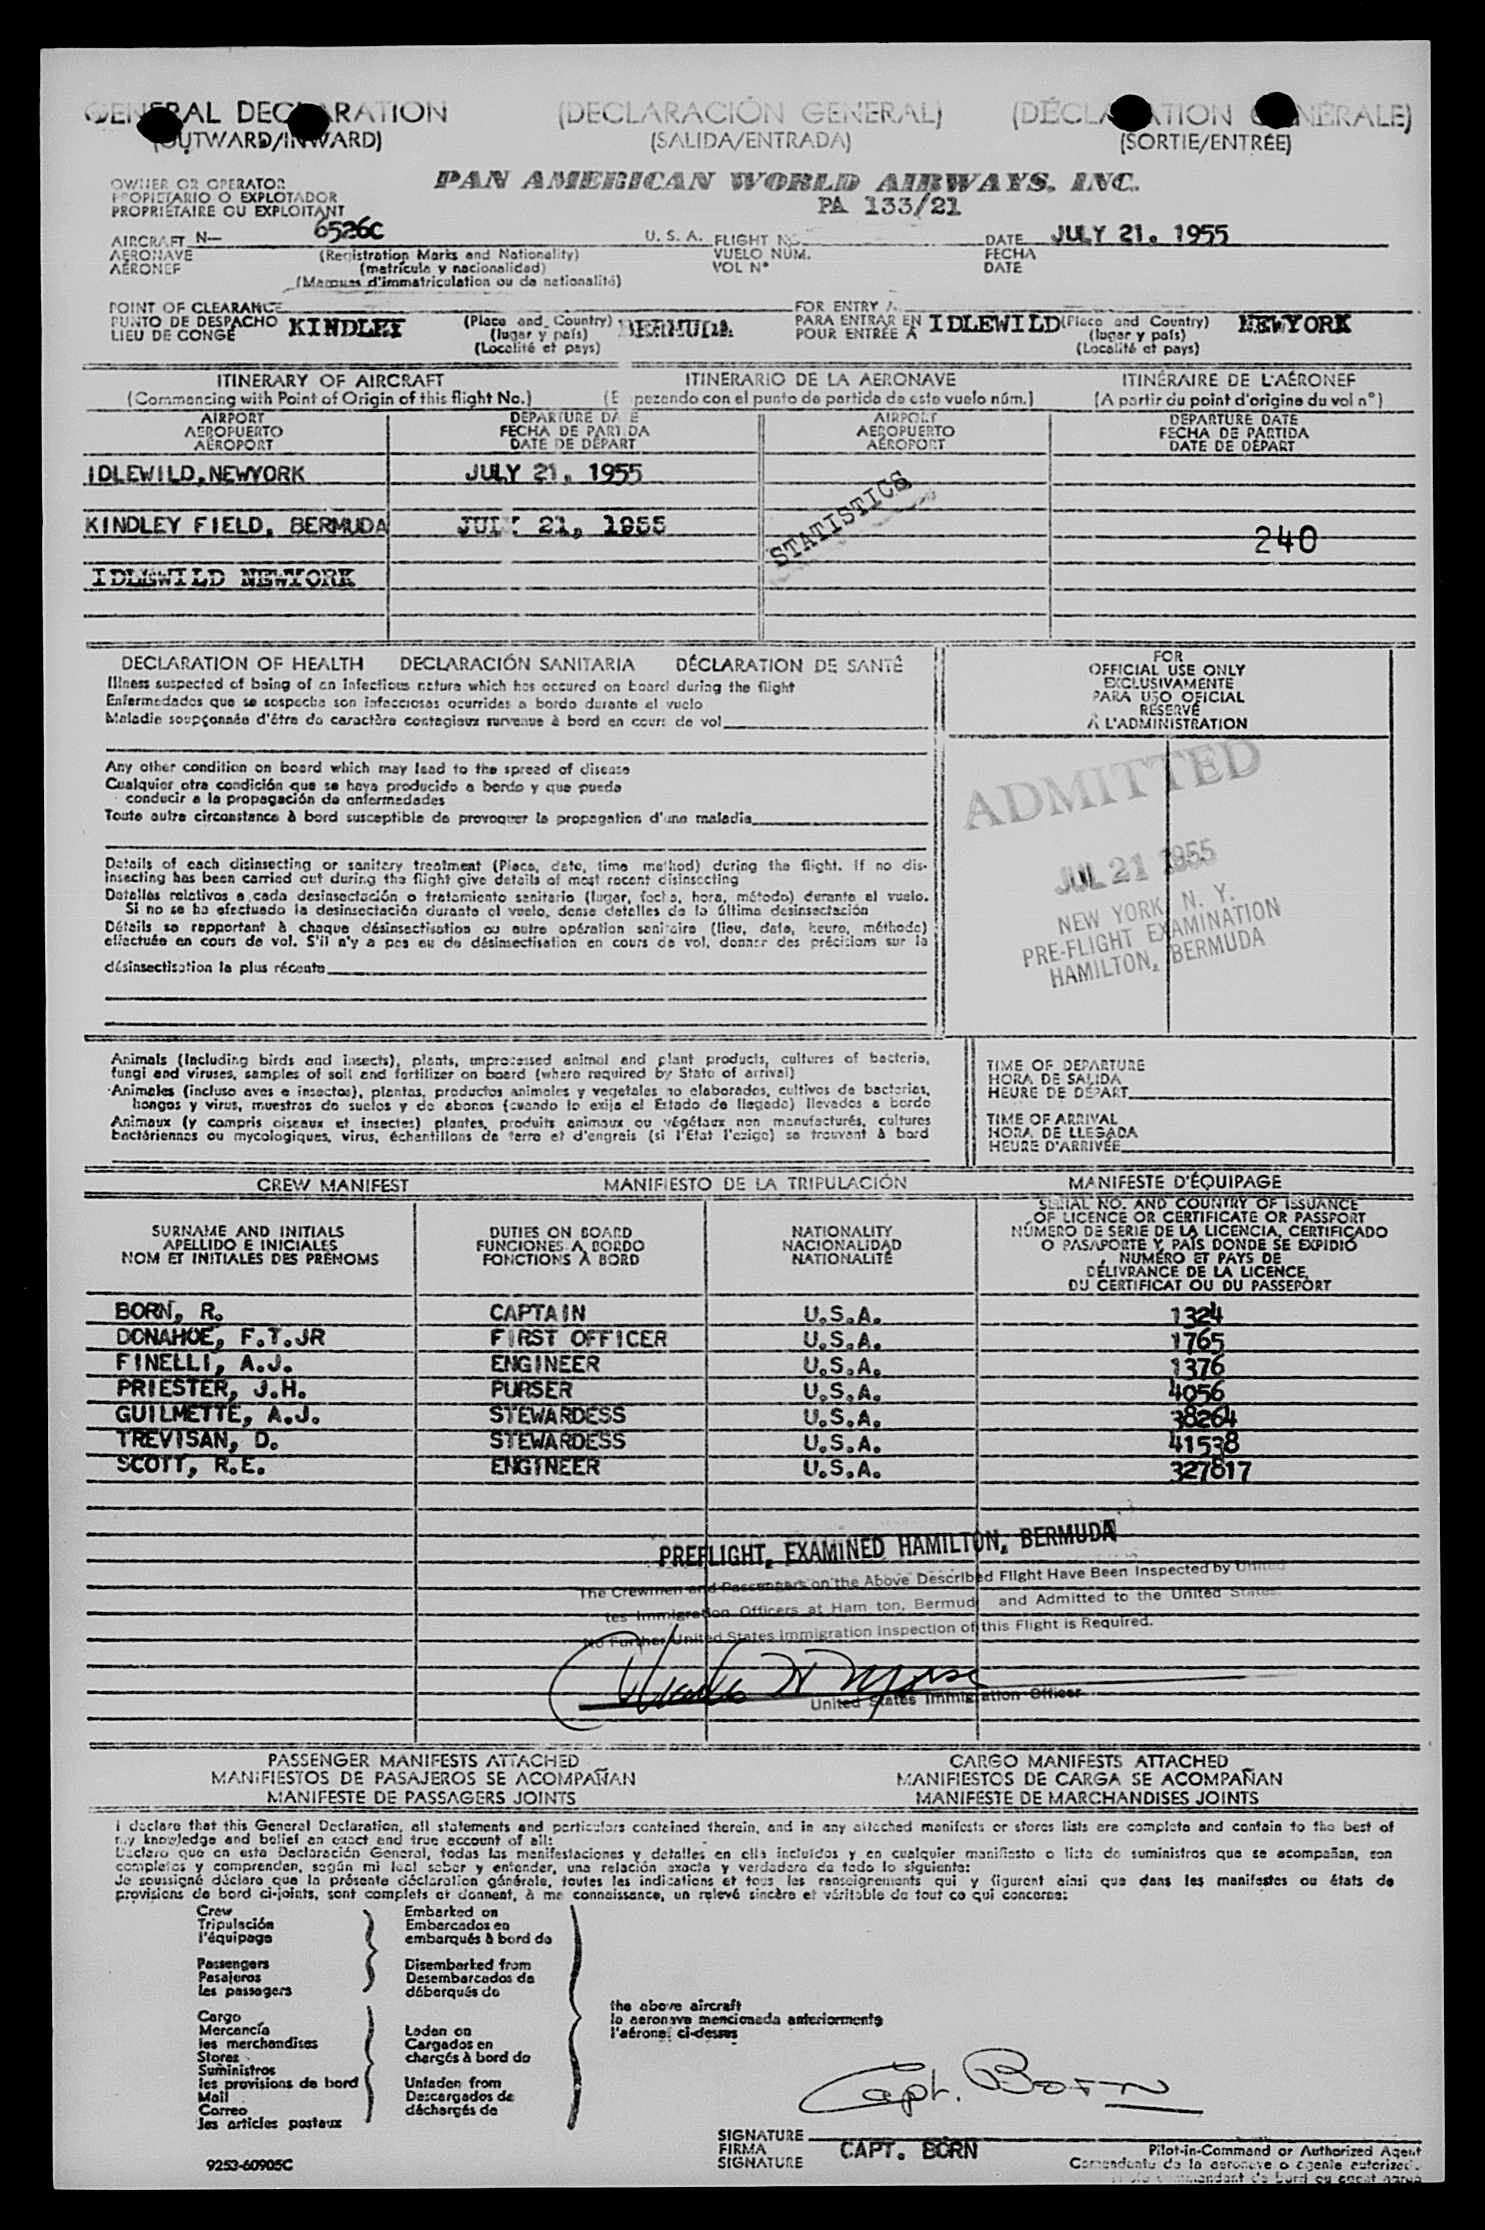 GENERAL DECLARATION (DECLARACIÓN GENERAL) (DÉCLARATION GÉNÉRALE)
(OUTWARD/INWARD) (SALIDA/ENTRADA) (SORTIE/ENTRÉE)
OWNER OR OPERATOR
PROPIETARIO O EXPLOTADOR
PROPRIÉTAIRE OU EXPLOITANT
PAN AMERICAN WORLD AIRWAYS, INC.
PA 133/21
AIRCRAFT N— 6526C U. S. A. FLIGHT NO. DATE JULY 21, 1955
AERONAVE (Registration Marks and Nationality) VUELO NÚM. FECHA
AÉRONEF (matrícula y nacionalidad) VOL N° DATE
(Marques d'immatriculation ou de nationalité)
POINT OF CLEARANCE FOR ENTRY
PUNTO DE DESPACHO KINDLEY (Place and Country) BERMUDA PARA ENTRAR EN IDLEWILD (Place and Country) NEWYORK
LIEU DE CONGÉ (lugar y país) POUR ENTRÉE A (lugar y país)
(Localité et pays) (Localité et pays)
ITINERARY OF AIRCRAFT ITINERARIO DE LA AERONAVE ITINÉRAIRE DE L'AÉRONEF
(Commencing with Point of Origin of this flight No.) (E pezando con el punto de partida de este vuelo núm.) (A partir du point d'origine du vol n°)
AIRPORT DEPARTURE DATE AIRPORT DEPARTURE DATE
AEROPUERTO FECHA DE PARTIDA AEROPUERTO FECHA DE PARTIDA
AÉROPORT DATE DE DÉPART AÉROPORT DATE DE DÉPART
IDLEWILD, NEWYORK JULY 21, 1955
STATISTICS
KINDLEY FIELD, BERMUDA JULY 21, 1955 240
IDLEWILD NEWYORK
DECLARATION OF HEALTH DECLARACIÓN SANITARIA DÉCLARATION DE SANTÉ
Illness suspected of being of an infectious nature which has occured on board during the flight
Enfermedades que se sospecha son infecciosas ocurridas a bordo durante el vuelo
Maladie soupçonnée d'être de caractère contagieux survenue à bord en cours de vol
FOR
OFFICIAL USE ONLY
EXCLUSIVAMENTE
PARA USO OFICIAL
RÉSERVÉ
À L'ADMINISTRATION
Any other condition on board which may lead to the spread of disease
Cualquier otra condición que se haya producido a bordo y que pueda
conducir a la propagación de enfermedades
Toute autre circonstance à bord susceptible de provoquer la propagation d'une maladie
ADMITTED
JUL 21 1955
NEW YORK, N. Y.
PRE-FLIGHT EXAMINATION
HAMILTON, BERMUDA
Details of each disinsecting or sanitary treatment (Place, date, time method) during the flight. If no dis-
insecting has been carried out during the flight give details of most recent disinsecting
Detalles relativos a cada desinsectación o tratamiento sanitario (lugar, fecha, hora, método) durante el vuelo.
Si no se ha efectuado la desinsectación durante el vuelo, dense detalles de la última desinsectación
Détails se rapportant à chaque désinsectisation ou autre opération sanitaire (lieu, date, heure, méthode)
effectuée en cours de vol. S'il n'y a pas eu de désinsectisation en cours de vol, donner des précisions sur la
désinsectisation la plus récente
Animals (Including birds and insects), plants, unprocessed animal and plant products, cultures of bacteria,
fungi and viruses, samples of soil and fertilizer on board (where required by State of arrival)
Animales (incluso aves e insectos), plantas, productos animales y vegetales no elaborados, cultivos de bacterias,
hongos y virus, muestras de suelos y de abonos (cuando lo exija el Estado de llegada) llevados a bordo
Animaux (y compris oiseaux et insectes) plantes, produits animaux ou végétaux non manufacturés, cultures
bactériennes ou mycologiques, virus, échantillons de terre et d'engrais (si l'État l'exige) se trouvant à bord
TIME OF DEPARTURE
HORA DE SALIDA
HEURE DE DÉPART
TIME OF ARRIVAL
HORA DE LLEGADA
HEURE D'ARRIVÉE
CREW MANIFEST MANIFIESTO DE LA TRIPULACIÓN MANIFESTE D'ÉQUIPAGE
SURNAME AND INITIALS
APELLIDO E INICIALES
NOM ET INITIALES DES PRÉNOMS
DUTIES ON BOARD
FUNCIONES A BORDO
FONCTIONS À BORD
NATIONALITY
NACIONALIDAD
NATIONALITÉ
SERIAL NO. AND COUNTRY OF ISSUANCE
OF LICENCE OR CERTIFICATE OR PASSPORT
NÚMERO DE SERIE DE LA LICENCIA, CERTIFICADO
O PASAPORTE Y PAÍS DONDE SE EXPIDIÓ
NUMÉRO ET PAYS DE
DÉLIVRANCE DE LA LICENCE,
DU CERTIFICAT OU DU PASSEPORT
BORN, R. CAPTAIN U.S.A. 1324
DONAHOE, F.T.JR FIRST OFFICER U.S.A. 1765
FINELLI, A.J. ENGINEER U.S.A. 1376
PRIESTER, J.H. PURSER U.S.A. 4056
GUILMETTE, A.J. STEWARDESS U.S.A. 38264
TREVISAN, D. STEWARDESS U.S.A. 41538
SCOTT, R.E. ENGINEER U.S.A. 327817
PREFLIGHT, EXAMINED HAMILTON, BERMUDA
The Crewmen and Passengers on the Above Described Flight Have Been Inspected by United
tes Immigration Officers at Ham ton, Bermud and Admitted to the United States.
No Further United States Immigration Inspection of this Flight is Required.
United States Immigration Officer
PASSENGER MANIFESTS ATTACHED CARGO MANIFESTS ATTACHED
MANIFIESTOS DE PASAJEROS SE ACOMPAÑAN MANIFIESTOS DE CARGA SE ACOMPAÑAN
MANIFESTE DE PASSAGERS JOINTS MANIFESTE DE MARCHANDISES JOINTS
I declare that this General Declaration, all statements and particulars contained therein, and in any attached manifests or stores lists are complete and contain to the best of
my knowledge and belief an exact and true account of all:
Declaro que en esta Declaración General, todas las manifestaciones y detalles en ella incluidos y en cualquier manifiesto o lista de suministros que se acompañan, son
completos y comprenden, según mi leal saber y entender, una relación exacta y verdadera de todo lo siguiente:
Je soussigné déclare que la présente déclaration générale, toutes les indications et tous les renseignements qui y figurent ainsi que dans les manifestes ou états de
provisions de bord ci-joints, sont complets et donnent, à ma connaissance, un relevé sincère et véritable de tout ce qui concerne:
Crew Embarked on
Tripulación Embarcados en
l'équipage embarqués à bord de
Passengers Disembarked from
Pasajeros Desembarcados de
les passagers débarqués de
Cargo
Mercancía Laden on
les merchandises Cargados en
Stores chargés à bord de
Suministros
les provisions de bord Unladen from
Mail Descargados de
Correo déchargés de
les articles postaux
the above aircraft
la aeronave mencionada anteriormente
l'aéronef ci-dessus
Capt. Born
SIGNATURE
FIRMA CAPT. BORN Pilot-in-Command or Authorized Agent
SIGNATURE Comandante de la aeronave o agente autorizado
9253-60905C